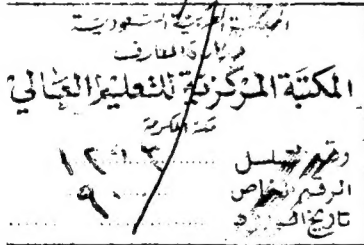 المملكة العربية السعودية
وزارة المعارف
المكتبة المركزية للتعليم العالي
مكة المكرمة
رقم التسلسل
الرقم الخاص ٩٠
تاريخ